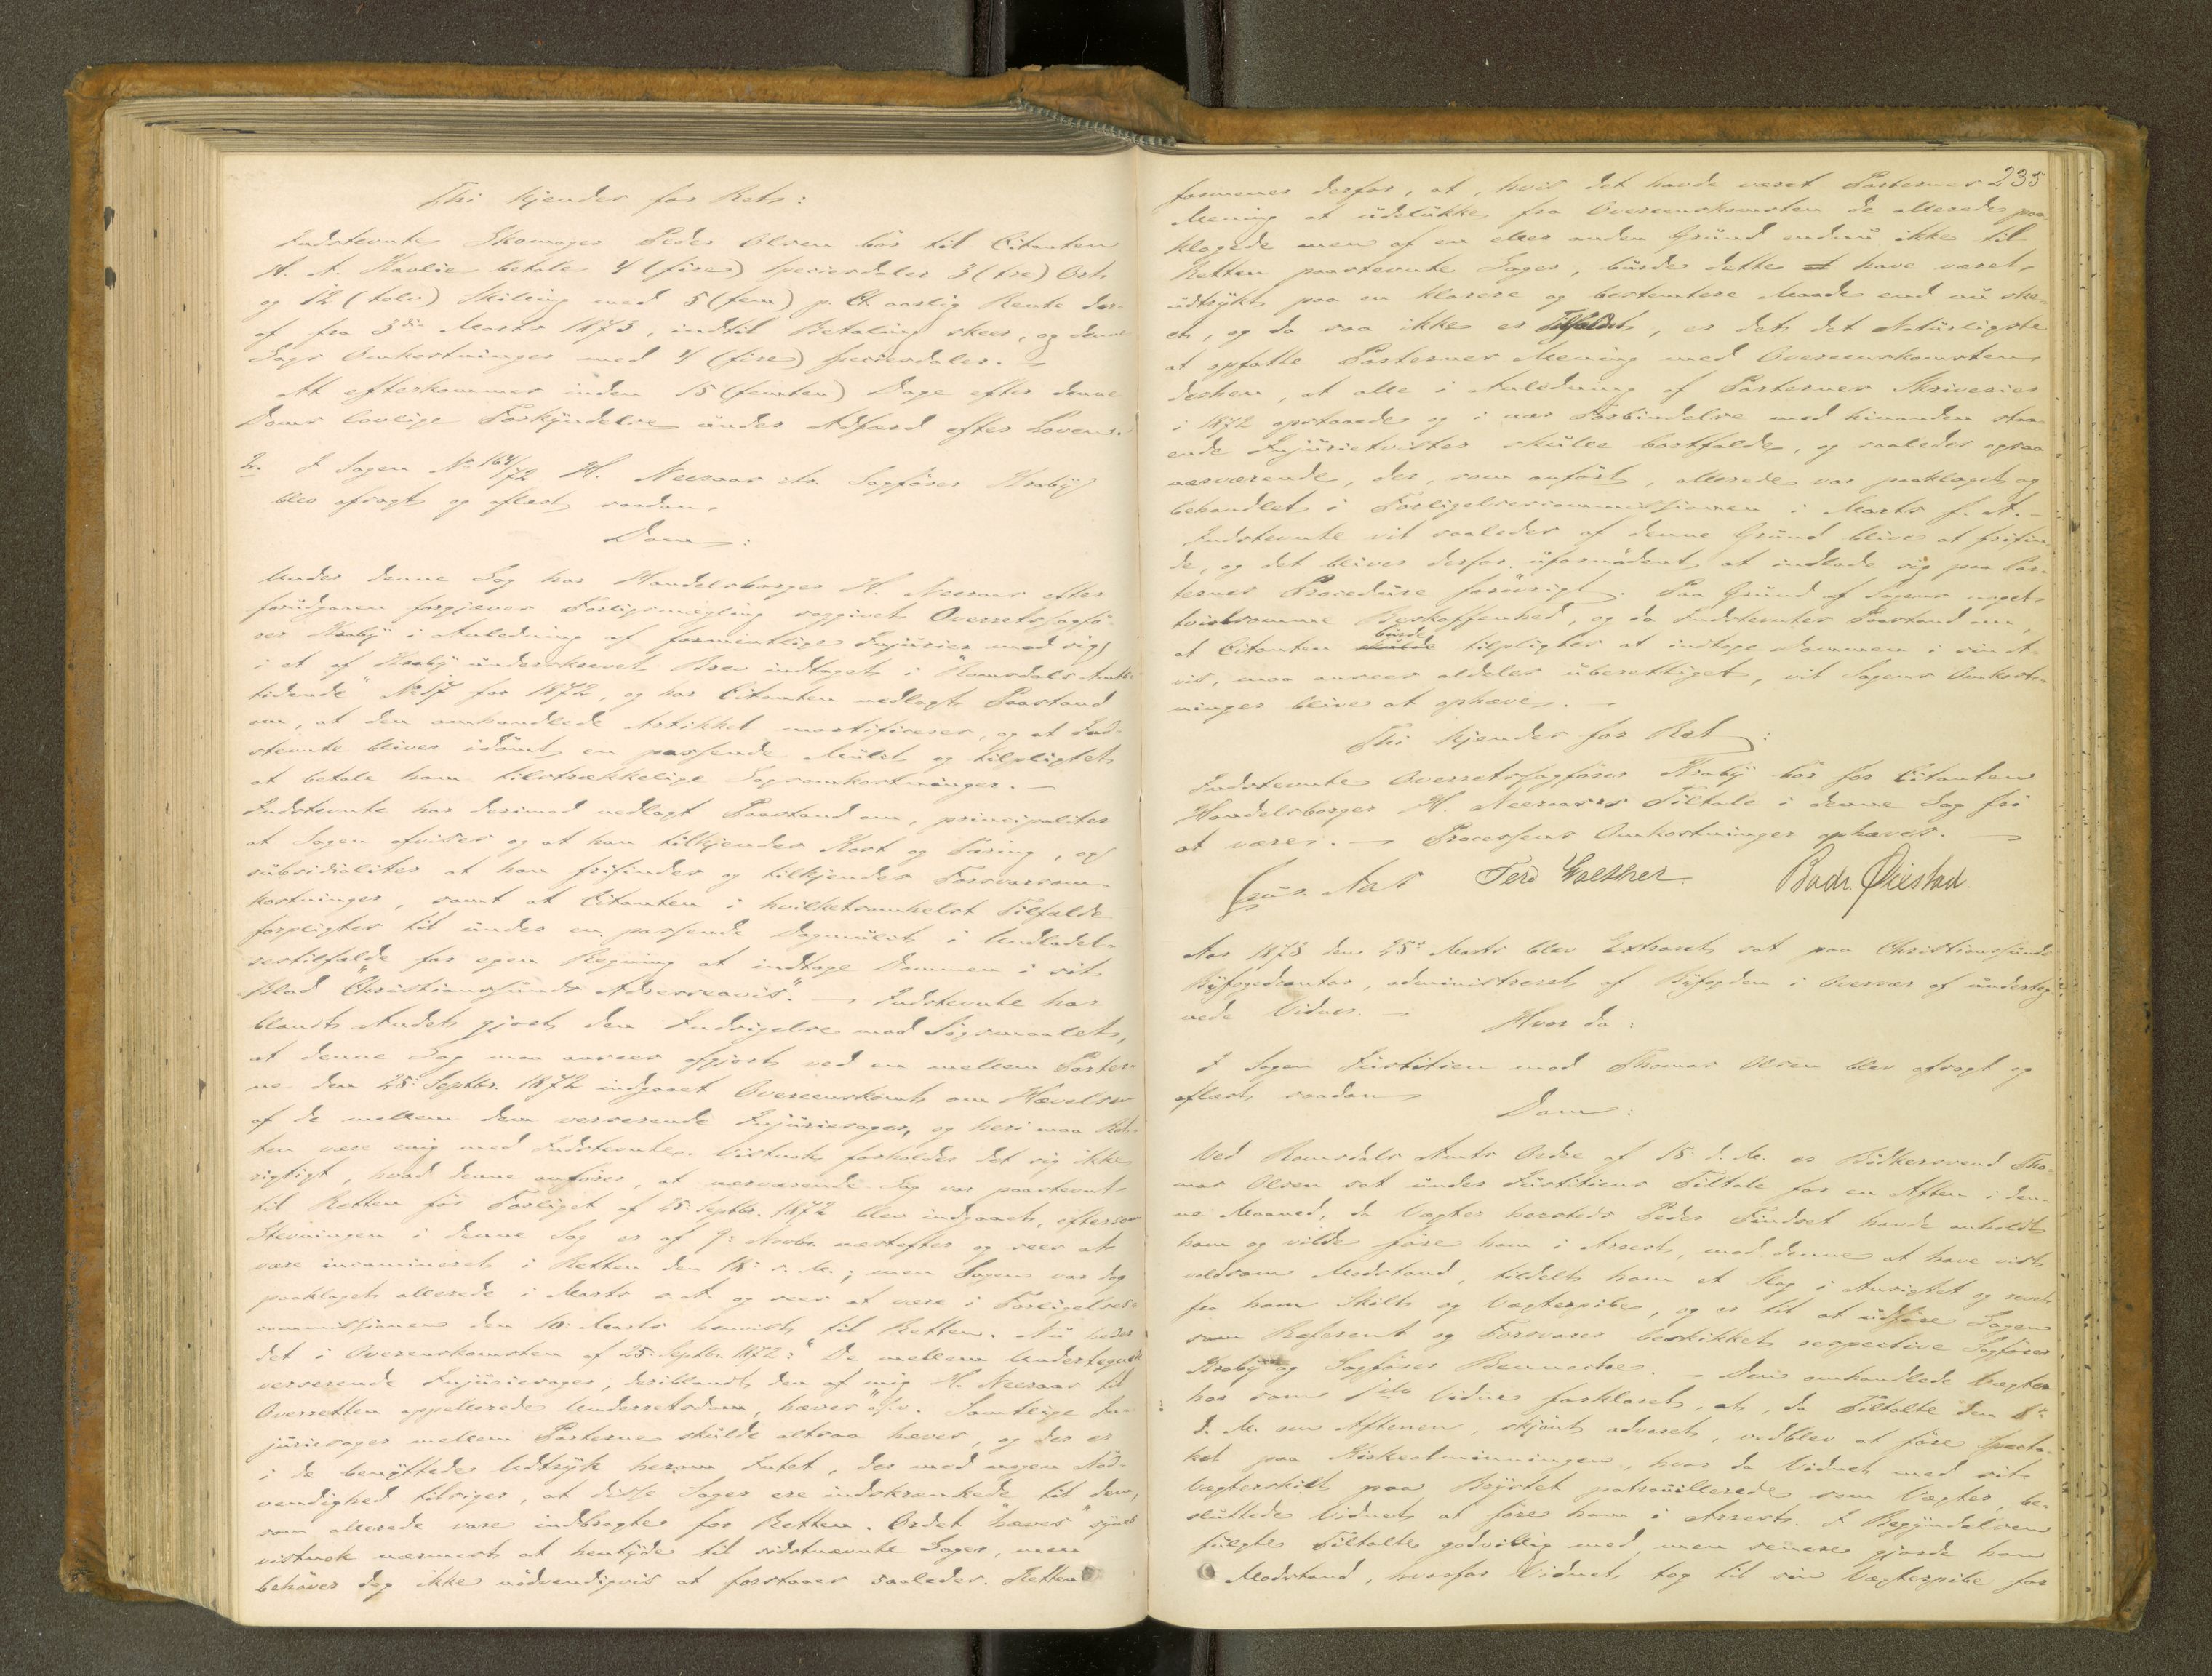 Thi kjendes for Ret:
Indstevnte Skomager Peder Olsen bør til Citanten
A. A. Havlie betale 4 (fire) Speciesdaler 3 (tre) Ort
og 12 (tolv) Skilling med 5 (fem) p. Ct. aarlig Rente der-
af fra 3die Marts 1873, indtil Betaling skeer, og denne
Sags Omkostninger med 4 (fire) Speciesdaler. –
At efterkommes inden 15 (femten) Dage efter denne
Doms lovlige Forkyndelse under Adfærd efter Loven.
2. I Sagen No 164/72 H. Neeraas ctr. Sagfører Kraby
blev afsagt og aflæst saadan
Dom:
Under denne Sag har Handelsborger H. Neeraas efter
forudgaaen forgjæves Forligsmægling sagsgivet Overretssagfø-
rer Kraby i Anledning af formentlige Injurier mod sig
i et af Kraby underskrevet Brev indtaget i "Romsdals Amts-
tidende" No 17 for 1872, og har Citanten nedlagt Paastand
om, at den omhandlede Artikkel mortificeres, og at Ind-
stevnte bliver idømt en passende Mulct og tilpligtet
at betale ham tilstrækkelige Sagsomkostninger. –
Indstevnte har derimod nedlagt Paastand om, principaliter
at Sagen afvises og at han tilkjendes Kost og Tæring, og
subsidialiter at han frifindes og tilkjendes Forsvarsom-
kostninger, samt at Citanten i hvilketsomhelst Tilfælde
forpligtes til under en passende Dagmulct i Undladel-
sestilfælde for egen Regning at indtage Dommen i sit
Blad "Christianssunds Adresseavis". – Indstevnte har
blandt Andet gjort den Indsigelse mod Søgsmaalet,
at denne Sag maa ansees afgjort ved en mellem Parter-
ne den 25: Septbr. 1872 indgaaet Overeenskomst om Hævelse
af de mellem dem verserende Injuriesager, og heri maa Ret-
ten være enig med Indstevnte. Vistnok forholder det sig ikke
rigtigt, hvad denne anfører, at nærværende Sag var paastevnt
til Retten før Forliget af 25: Septbr. 1872 blev indgaaet, eftersom
Stevningen i denne Sag er af 9: Novbr. næstefter og sees at
være incamineret i Retten den 18: s. M.; men Sagen var dog
paaklaget allerede i Marts s. A. og sees at være i Forligelses-
commissionen den 10: Marts henvist til Retten. Nu heder
det i Overenskomsten af 25: Septbr. 1872: "De mellem Undertegnede
verserende Injuriesager, deriblandt den af mig H. Neeraas til
Overretten appellerede Underretsdom, hæves" o.s.v. Samtlige In-
juriesager mellem Parterne skulde altsaa hæves, og der er
i de benyttede Udtryk herom Intet, der med nogen Nød-
vendighed tilsiger, at disse Sager ere indskrænkede til dem,
som allerede vare indbragte for Retten. Ordet "hæves" synes
vistnok nærmest at hentyde til sidstnævnte Sager, men
behøver dog ikke nødvendigvis at forstaaes saaledes. Retten
235
formener derfor, at, hvis det havde været Parternes
Mening at udelukke fra Overeenskomsten de allerede paa-
klagede men af en eller anden Grund endnu ikke til
Retten paastevnte Sager, burde dette have været
udtrykt paa en klarere og bestemtere Maade end nu ske-
et, og da saa ikke er Tilfældet, er det det Naturligste
at opfatte Parternes Mening med Overeenskomsten
derhen, at alle i Anledning af Parternes Skriverier
i 1872 opstaaede og i nær Forbindelse med hinanden staa-
ende Injurietvister skulle bortfalde, og saaledes ogsaa
nærværende, der, som anført, allerede var paaklaget og
behandlet i Forligelsescommissionen i Marts f. A. –
Indstevnte vil saaledes af denne Grund blive at frifin-
de, og det bliver derfor ufornødent at indlade sig paa Par-
ternes Procedure forøvrigt. Paa Grund af Sagens noget
tvivlsomme Beskaffenhed, og da Indstevntes Paastand om,
at Citanten burde tilpligtes at indtage Dommen i sin A-
vis, maa ansees aldeles uberettiget, vil Sagens Omkost-
ninger blive at ophæve. –
Thi kjendes for Ret:
Indstevnte Overretssagfører Kraby bør for Citanten
Handelsborger H. Neeraas's Tiltale i denne Sag fri
at være. – Processens Omkostninger ophæves. –
Ferd Baadr. Øiestad.
Aar 1873 den 25: Marts blev Extraret sat paa Christianssunds
Byfogedcontor, administreret af Byfogden i Overvær af underteg-
nede Vidner. –
Hvor da:
I Sagen Justitien mod Thomas Olsen blev afsagt og
aflæst saadan
Dom:
Ved Romsdals Amts Ordre af 15: d. M. er Bødkersvend Tho-
mas Olsen sat under Justitiens Tiltale for en Aften i den-
ne Maaned, da Vægter hersteds Peder Tindset havde anholdt
ham og vilde føre ham i Arrest, mod denne at have vist
voldsom Modstand, tildelt ham et Slag i Ansigtet og revet
fra ham Skilt og Vægterpibe, og er til at udføre Sagen
som Referent og Forsvarer beskikket respective Sagfører
Kraby og Sagfører Bennecke. – Den omhandlede Vægter
har som 1ste Vidne forklaret, at, da Tiltalte den 8:
d. M. om Aftenen, skjønt advaret, vedblev at føre Specta-
kel paa Kirkealmindingen, hvor da Vidnet med sit
Vægterskilt paa Brystet patrouillerede som Vægter, be-
sluttede Vidnet at føre ham i Arrest. I Begyndelsen
fulgte Tiltalte godvillig med, men senere gjorde han
Modstand, hvorfor Vidnet tog til sin Vægterpibe for